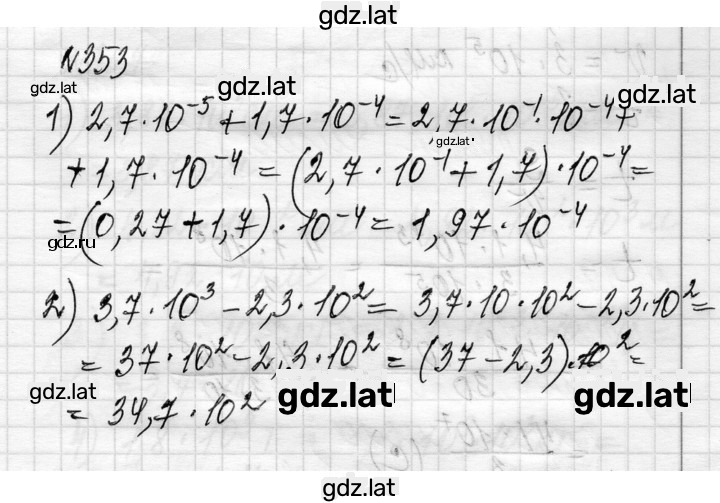 gdz.lat
№353
gdz.lat gdz.lat gdz.lat
1) 2,7·10⁻⁵ + 1,7·10⁻⁴ = 2,7·10⁻¹·10⁻⁴ +
gdz.lat
+ 1,7·10⁻⁴ = (2,7·10⁻¹ + 1,7)·10⁻⁴ =
= (0,27 + 1,7)·10⁻⁴ = 1,97·10⁻⁴
gdz.ru
2) 3,7·10³ – 2,3·10² = 3,7·10·10² – 2,3·10² =
= 37·10² – 2,3·10² = (37 – 2,3)·10² =
gdz.lat gdz.lat gdz.lat
= 34,7·10²
gdz.lat